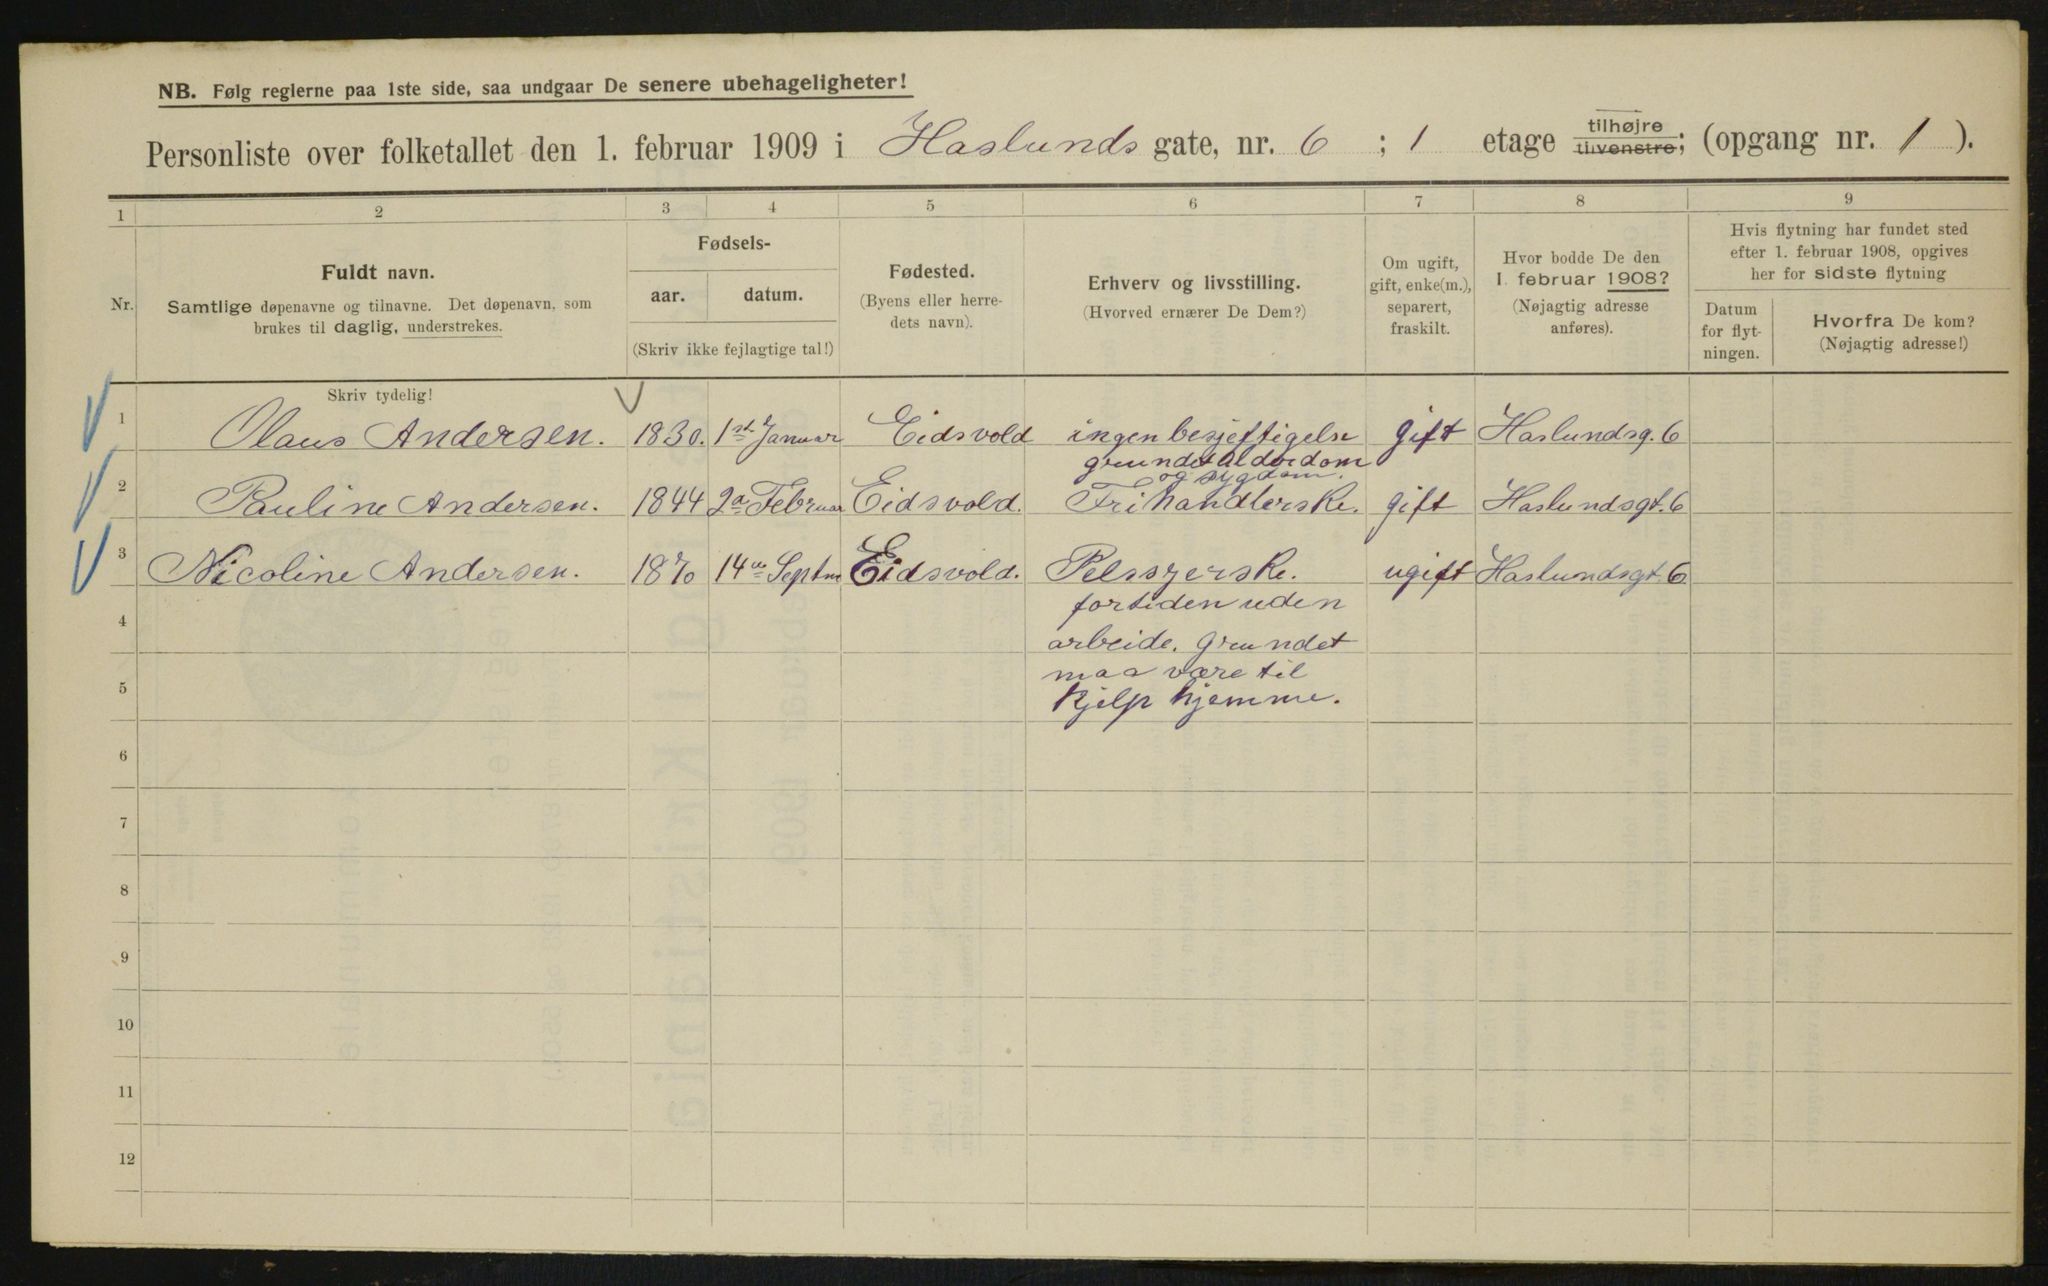 NB. Følg reglerne paa 1ste side, saa undgaar De senere ubehageligheter!
Personliste over folketallet den 1. februar 1909 i Haslunds gate, nr. 6 ; 1 etage tilhøjre tilvenstre; (opgang nr. 1 ).
1 2 3 4 5 6 7 8 9
Nr.
Fuldt navn.
Samtlige døpenavne og tilnavne. Det døpenavn, som
brukes til daglig, understrekes.
Fødsels-
aar. datum.
(Skriv ikke fejlagtige tal!)
Fødested.
(Byens eller herre-
dets navn).
Erhverv og livsstilling.
(Hvorved ernærer De Dem?)
Om ugift,
gift, enke(m.),
separert,
fraskilt.
Hvor bodde De den
1. februar 1908?
(Nøjagtig adresse
anføres).
Hvis flytning har fundet sted
efter 1. februar 1908, opgives
her for sidste flytning
Datum
for flyt-
ningen.
Hvorfra De kom?
(Nøjagtig adresse!)
Skriv tydelig!
1 Olaus Andersen. 1830. 1st Januar Eidsvold ingen besjeftigelse gift Haslundsg. 6
grundet Alderdom
og sygdom.
2 Pauline Andersen. 1844 2a Februar Eidsvold. Frihandlerske. gift Haslundsgt. 6
3 Nicoline Andersen. 1870 14de Septm Eidsvold. Pelssyerske. ugift Haslundsgt. 6
fortiden uden
4
arbeide. Grundet
maa være til
5
Kjelp hjemme.
6
7
8
9
10
11
12